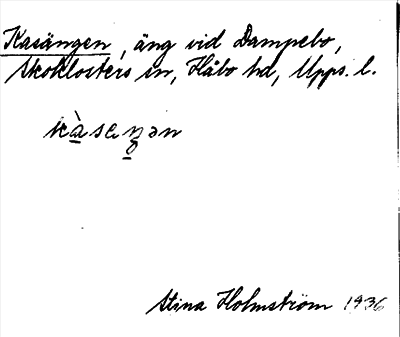 Kasängen, äng vid Dampebo,
Skoklosters sn, Håbo hd, Upps. l.
kàseŋən
Stina Holmström 1936